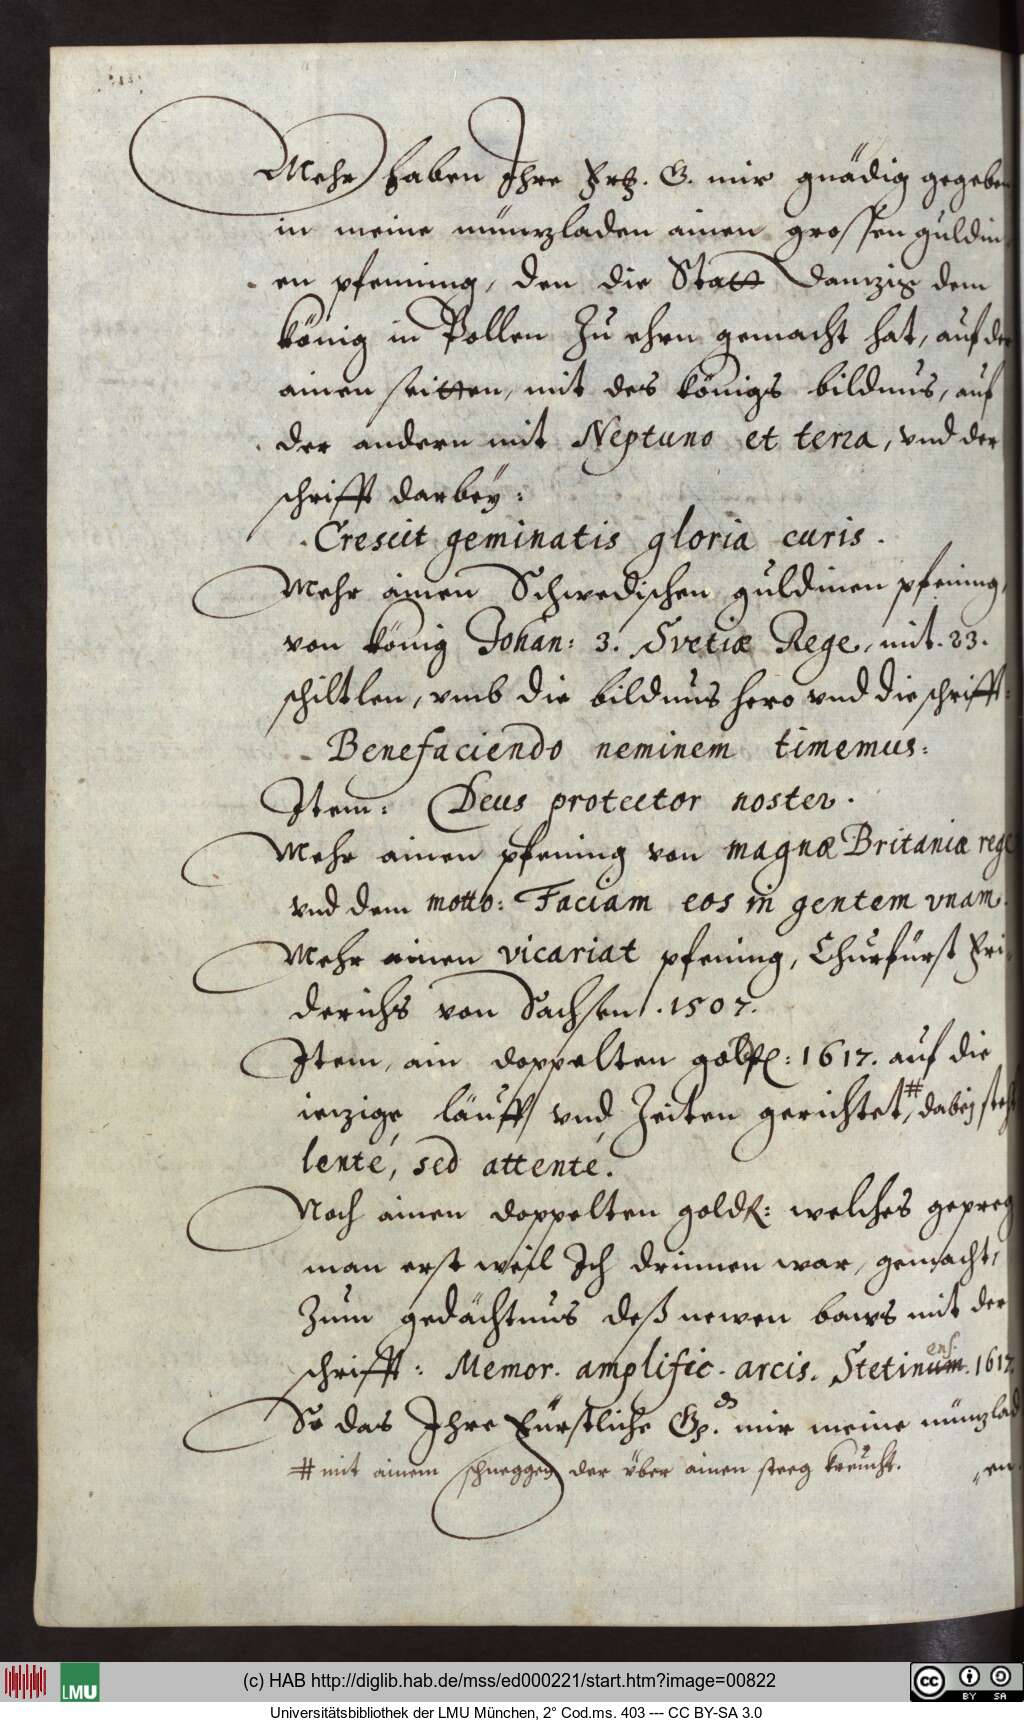 Mehr haben Ihre Frl. G. mir gnädig gegeben
in meine müntzladen ainen grossen guldin
en pfenning, den die Statt Dantzig dem
könig in Pollen zu ehrn gemacht hat, auf der
ainen seitten, mit des königs bildnus, auf
der andern mit Neptuno et terra, vnd der
schrifft darbeÿ:
Crescit geminatis gloria curis.
Mehr ainen Schwedischen guldinen pfening,
von könig Johan: 3. Svetiæ Rege, mit. 23.
schiltlen, vmb die bildnus hero vnd die schrifft:
Benefaciendo neminem timemus:
Item: Deus protector noster.
Mehr ainen pfening von magnæ Britaniæ rege
vnd dem motto: Faciam eos in gentem vnam.
Mehr ainen vicariat pfening, Churfürst Fri
derichs von Sachsen. 1507.
Item, ain doppelten goldfl: 1617. auf die
ietzige läuff, vnd Zeiten gerichtet,# dabeÿ steht
lenté, sed attenté.
Noch ainen doppelten goldfl: welches gepreg
man erst weil Ich drinnen war, gemacht,
Zum gedächtnus deß newen baws mit der
schrifft: Memor. amplific. arcis. Stetinum ens. 1617.
So das Ihre Fürstliche Gn. mir meine müntzlad
# mit ainem schneggen der über ainen steeg kreucht.
en
(c) HAB http://diglib.hab.de/mss/ed000221/start.htm?image=00822
LMU
cc BY SA
Universitätsbibliothek der LMU München, 2° Cod.ms. 403 --- CC BY-SA 3.0